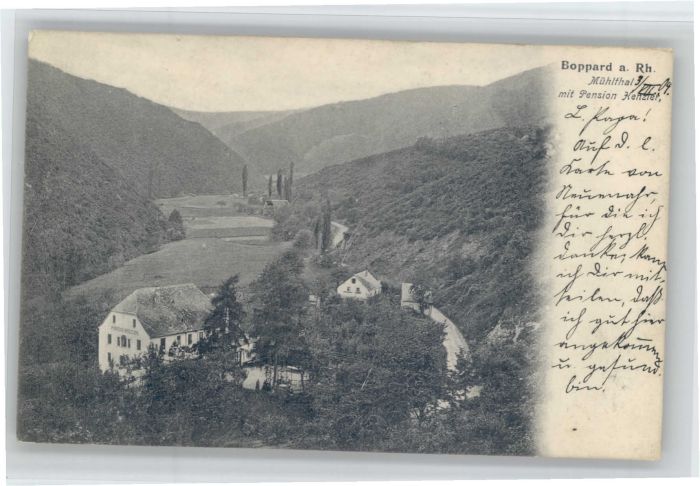 Boppard a. Rh.
Mühlthal 3/III 04.
mit Pension Henzler,
L. Papa!
Auf d. l.
Karte von
Neuenahr,
für die ich
Dir herzl.
danke, kann
ich Dir mit-
teilen, daß
ich gut hier
angekommen
u. gesund
bin.